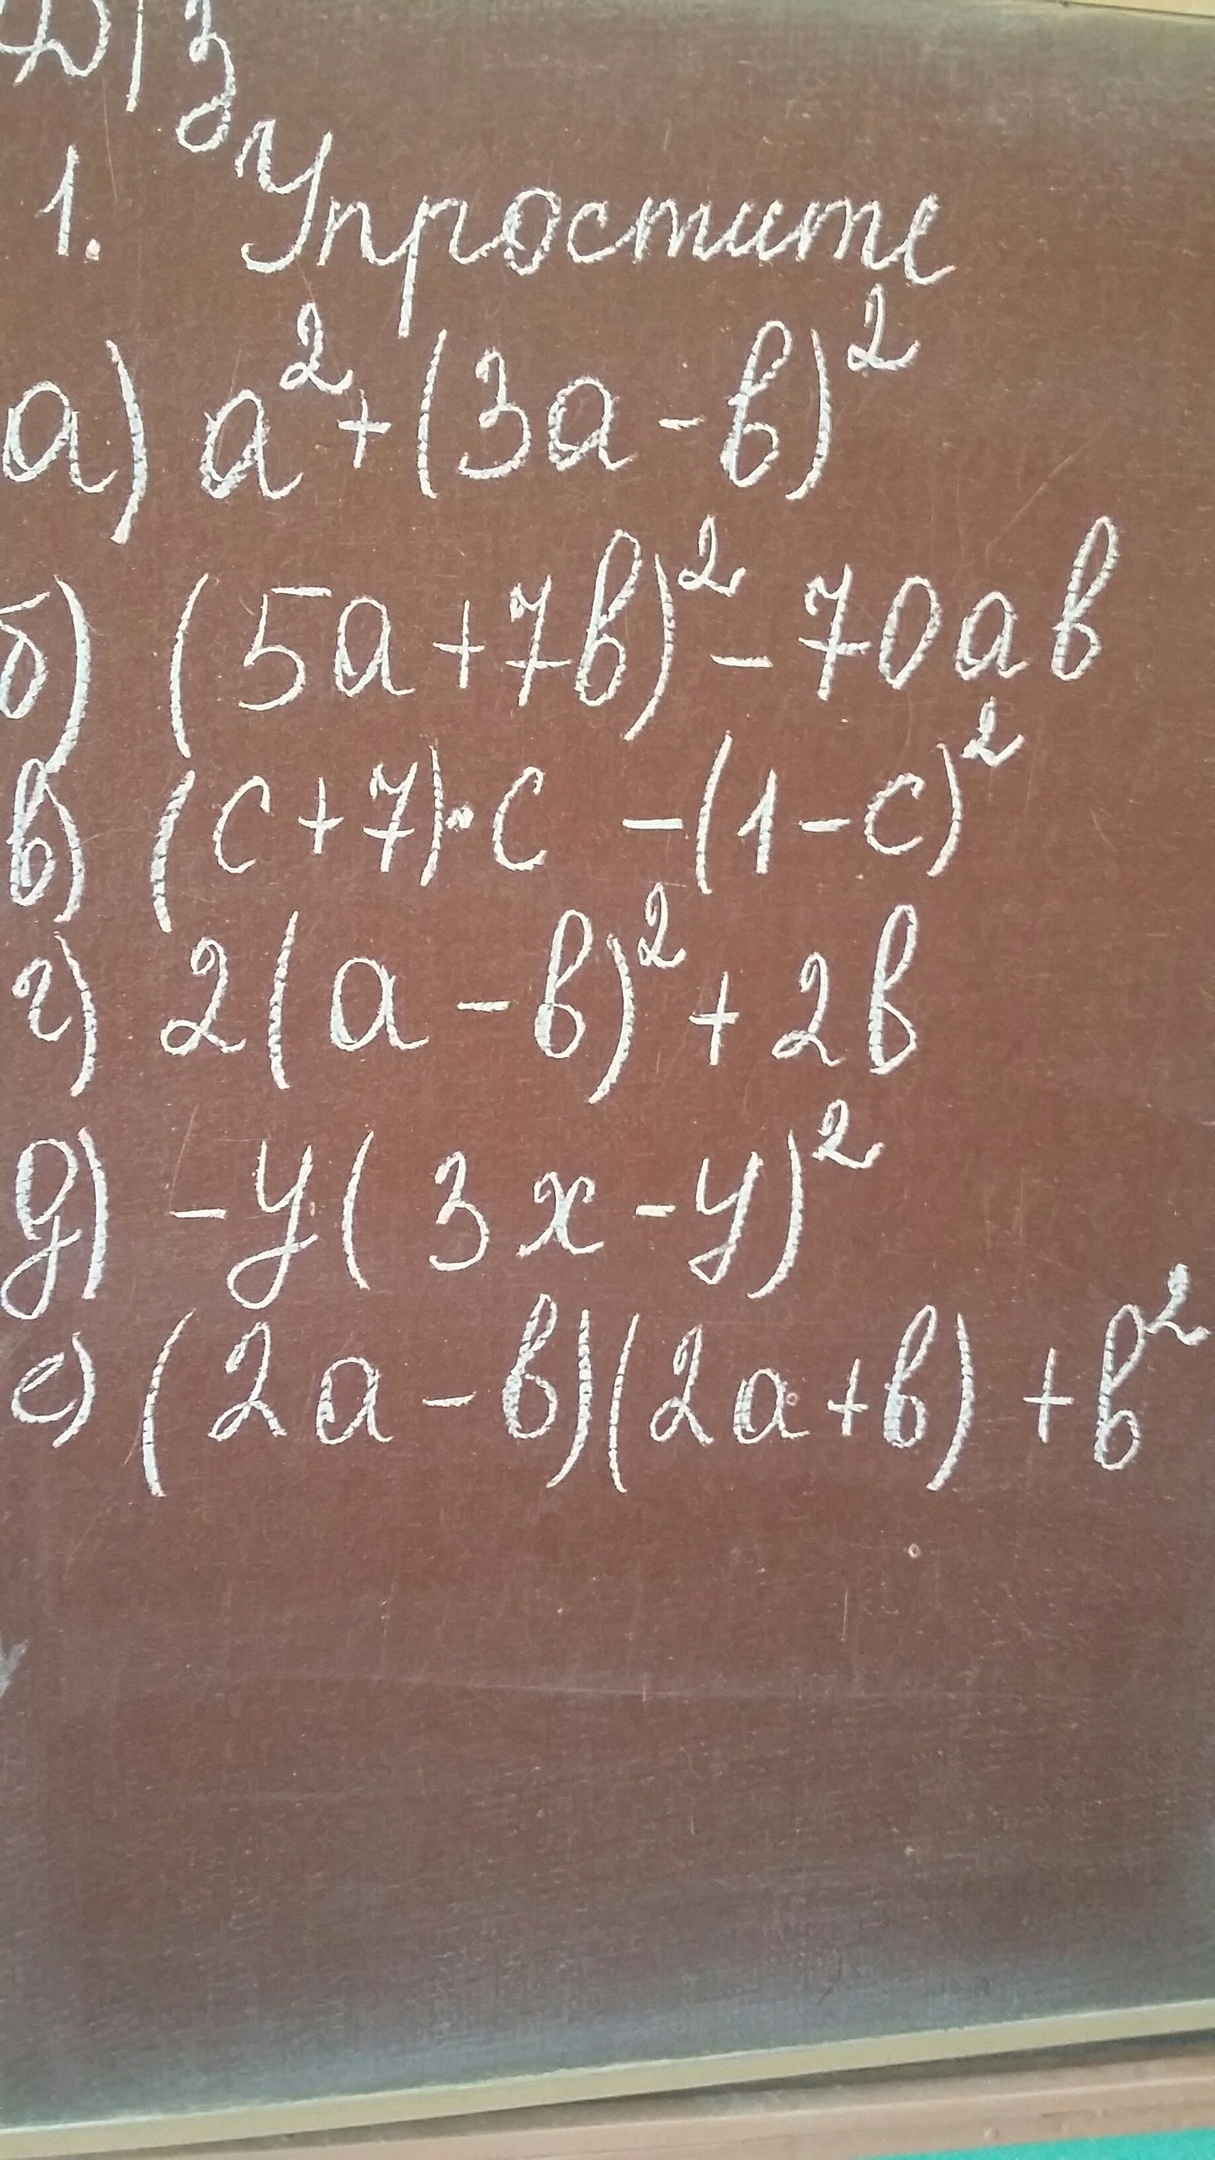 Д/з
1. Упростите
а) a² + (3a - b)²
б) (5a + 7b)² - 70ab
в) (c + 7)·c - (1 - c)²
г) 2(a - b)² + 2b
д) -y(3x - y)²
е) (2a - b)(2a + b) + b²